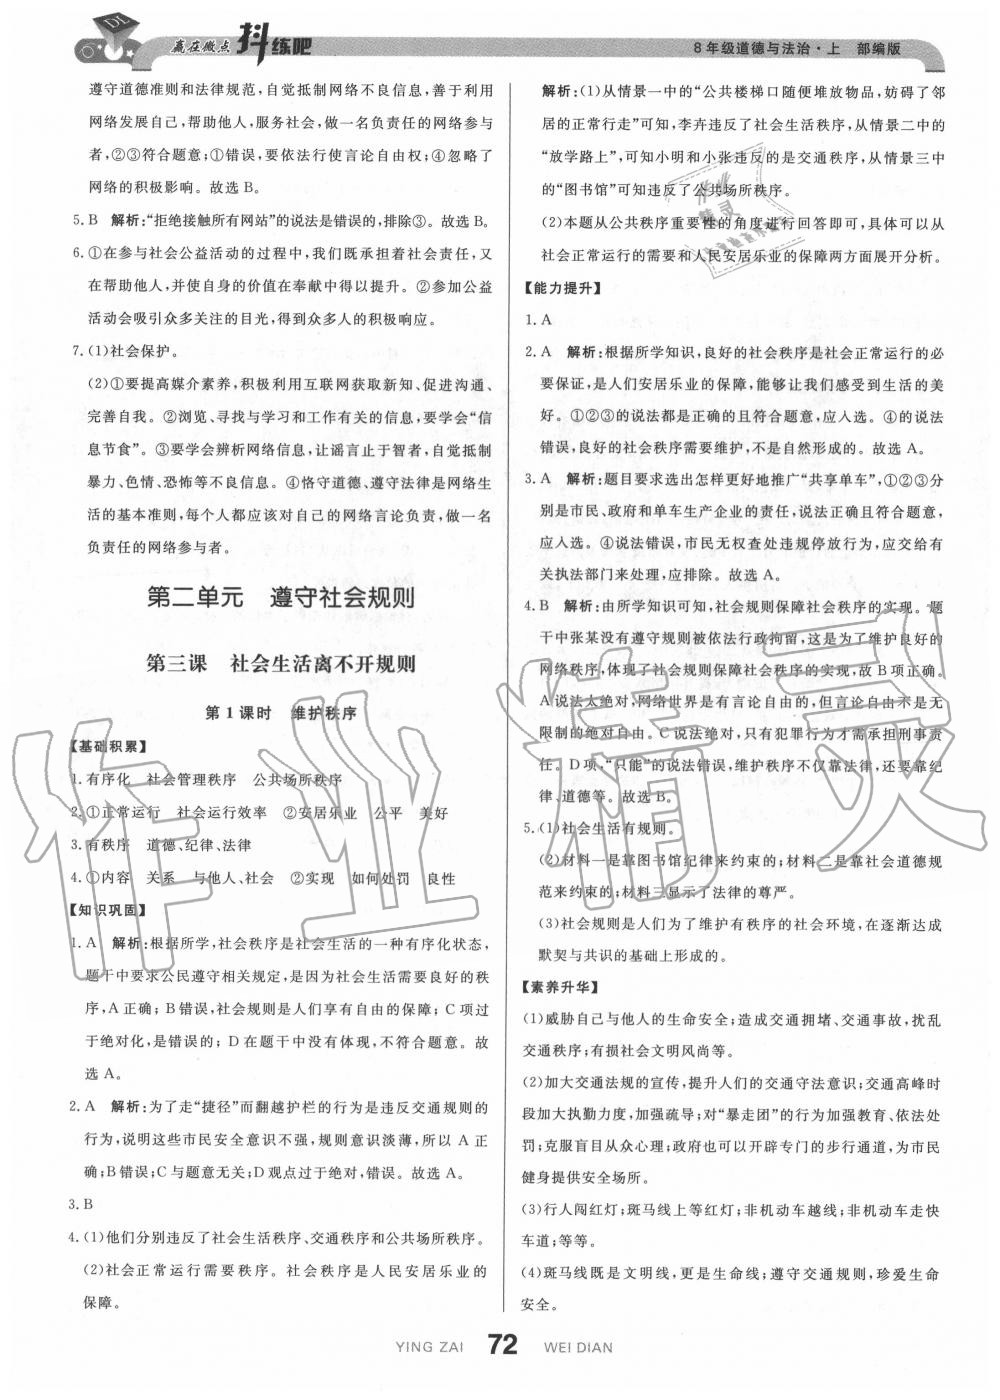 赢在微点 抖练吧
8年级道德与法治·上 部编版
遵守道德准则和法律规范,自觉抵制网络不良信息,善于利用
网络发展自己,帮助他人,服务社会,做一名负责任的网络参与
者,②③符合题意;①错误,要依法行使言论自由权;④忽略了
网络的积极影响。故选 B。
5. B 解析:“拒绝接触所有网站”的说法是错误的,排除③。故选 B。
6. ①在参与社会公益活动的过程中,我们既承担着社会责任,又
在帮助他人,并使自身的价值在奉献中得以提升。②参加公益
活动会吸引众多关注的目光,得到众多人的积极响应。
7. (1)社会保护。
(2)①要提高媒介素养,积极利用互联网获取新知、促进沟通、
完善自我。②浏览、寻找与学习和工作有关的信息,要学会“信
息节食”。③要学会辨析网络信息,让谣言止于智者,自觉抵制
暴力、色情、恐怖等不良信息。④恪守道德、遵守法律是网络生
活的基本准则,每个人都应该对自己的网络言论负责,做一名
负责任的网络参与者。
第二单元 遵守社会规则
第三课 社会生活离不开规则
第 1 课时 维护秩序
【基础积累】
1. 有序化 社会管理秩序 公共场所秩序
2. ①正常运行 社会运行效率 ②安居乐业 公平 美好
3. 有秩序 道德、纪律、法律
4. ①内容 关系 与他人、社会 ②实现 如何处罚 良性
【知识巩固】
1. A 解析:根据所学,社会秩序是社会生活的一种有序化状态,
题干中要求公民遵守相关规定,是因为社会生活需要良好的秩
序,A 正确;B 错误,社会规则是人们享有自由的保障;C 项过
于绝对化,是错误的;D 在题干中没有体现,不符合题意。故
选 A。
2. A 解析:为了走“捷径”而翻越护栏的行为是违反交通规则的
行为,说明这些市民安全意识不强,规则意识淡薄,所以 A 正
确;B 错误;C 与题意无关;D 观点过于绝对,错误。故选 A。
3. B
4. (1)他们分别违反了社会生活秩序、交通秩序和公共场所秩序。
(2)社会正常运行需要秩序。社会秩序是人民安居乐业的
保障。
解析:(1)从情景一中的“公共楼梯口随便堆放物品,妨碍了邻
居的正常行走”可知,李卉违反了社会生活秩序,从情景二中的
“放学路上”,可知小明和小张违反的是交通秩序,从情景三中
的“图书馆”可知违反了公共场所秩序。
(2)本题从公共秩序重要性的角度进行回答即可,具体可以从
社会正常运行的需要和人民安居乐业的保障两方面展开分析。
【能力提升】
1. A
2. A 解析:根据所学知识,良好的社会秩序是社会正常运行的必
要保证,是人们安居乐业的保障,能够让我们感受到生活的美
好。①②③的说法都是正确的且符合题意,应入选。④的说法
错误,良好的社会秩序需要维护,不是自然形成的。故选 A。
3. A 解析:题目要求选出怎样更好地推广“共享单车”,①②③分
别是市民、政府和单车生产企业的责任,说法正确且符合题意,
应入选。④说法错误,市民无权查处违规停放行为,应交给有
关执法部门来处理,应排除。故选 A。
4. B 解析:由所学知识可知,社会规则保障社会秩序的实现。题
干中张某没有遵守规则被依法行政拘留,这是为了维护良好的
网络秩序,体现了社会规则保障社会秩序的实现,故 B 项正确。
A 说法太绝对,网络世界是有言论自由的,但言论自由不是无
限制的绝对自由。C 说法绝对,只有犯罪行为才承担刑事责
任。D 项,“只能”的说法错误,维护秩序不仅靠法律,还要靠纪
律、道德等。故选 B。
5. (1)社会生活有规则。
(2)材料一是靠图书馆纪律来约束的;材料二是靠社会道德规
范来约束的;材料三显示了法律的尊严。
(3)社会规则是人们为了维护有秩序的社会环境,在逐渐达成
默契与共识的基础上形成的。
【素养升华】
(1)威胁自己与他人的生命安全;造成交通拥堵、交通事故,扰乱
交通秩序;有损社会文明风尚等。
(2)加大交通法规的宣传,提升人们的交通守法意识;交通高峰时
段加大执勤力度,加强疏导;对“暴走团”的行为加强教育、依法处
罚;克服盲目从众心理;政府也可以开辟专门的步行通道,为市民
健身提供安全场所。
(3)行人闯红灯;斑马线上等红灯;非机动车越线;非机动车走快
车道;等等。
(4)斑马线既是文明线,更是生命线;遵守交通规则,珍爱生命
安全。
YING ZAI 72 WEI DIAN
作业精灵